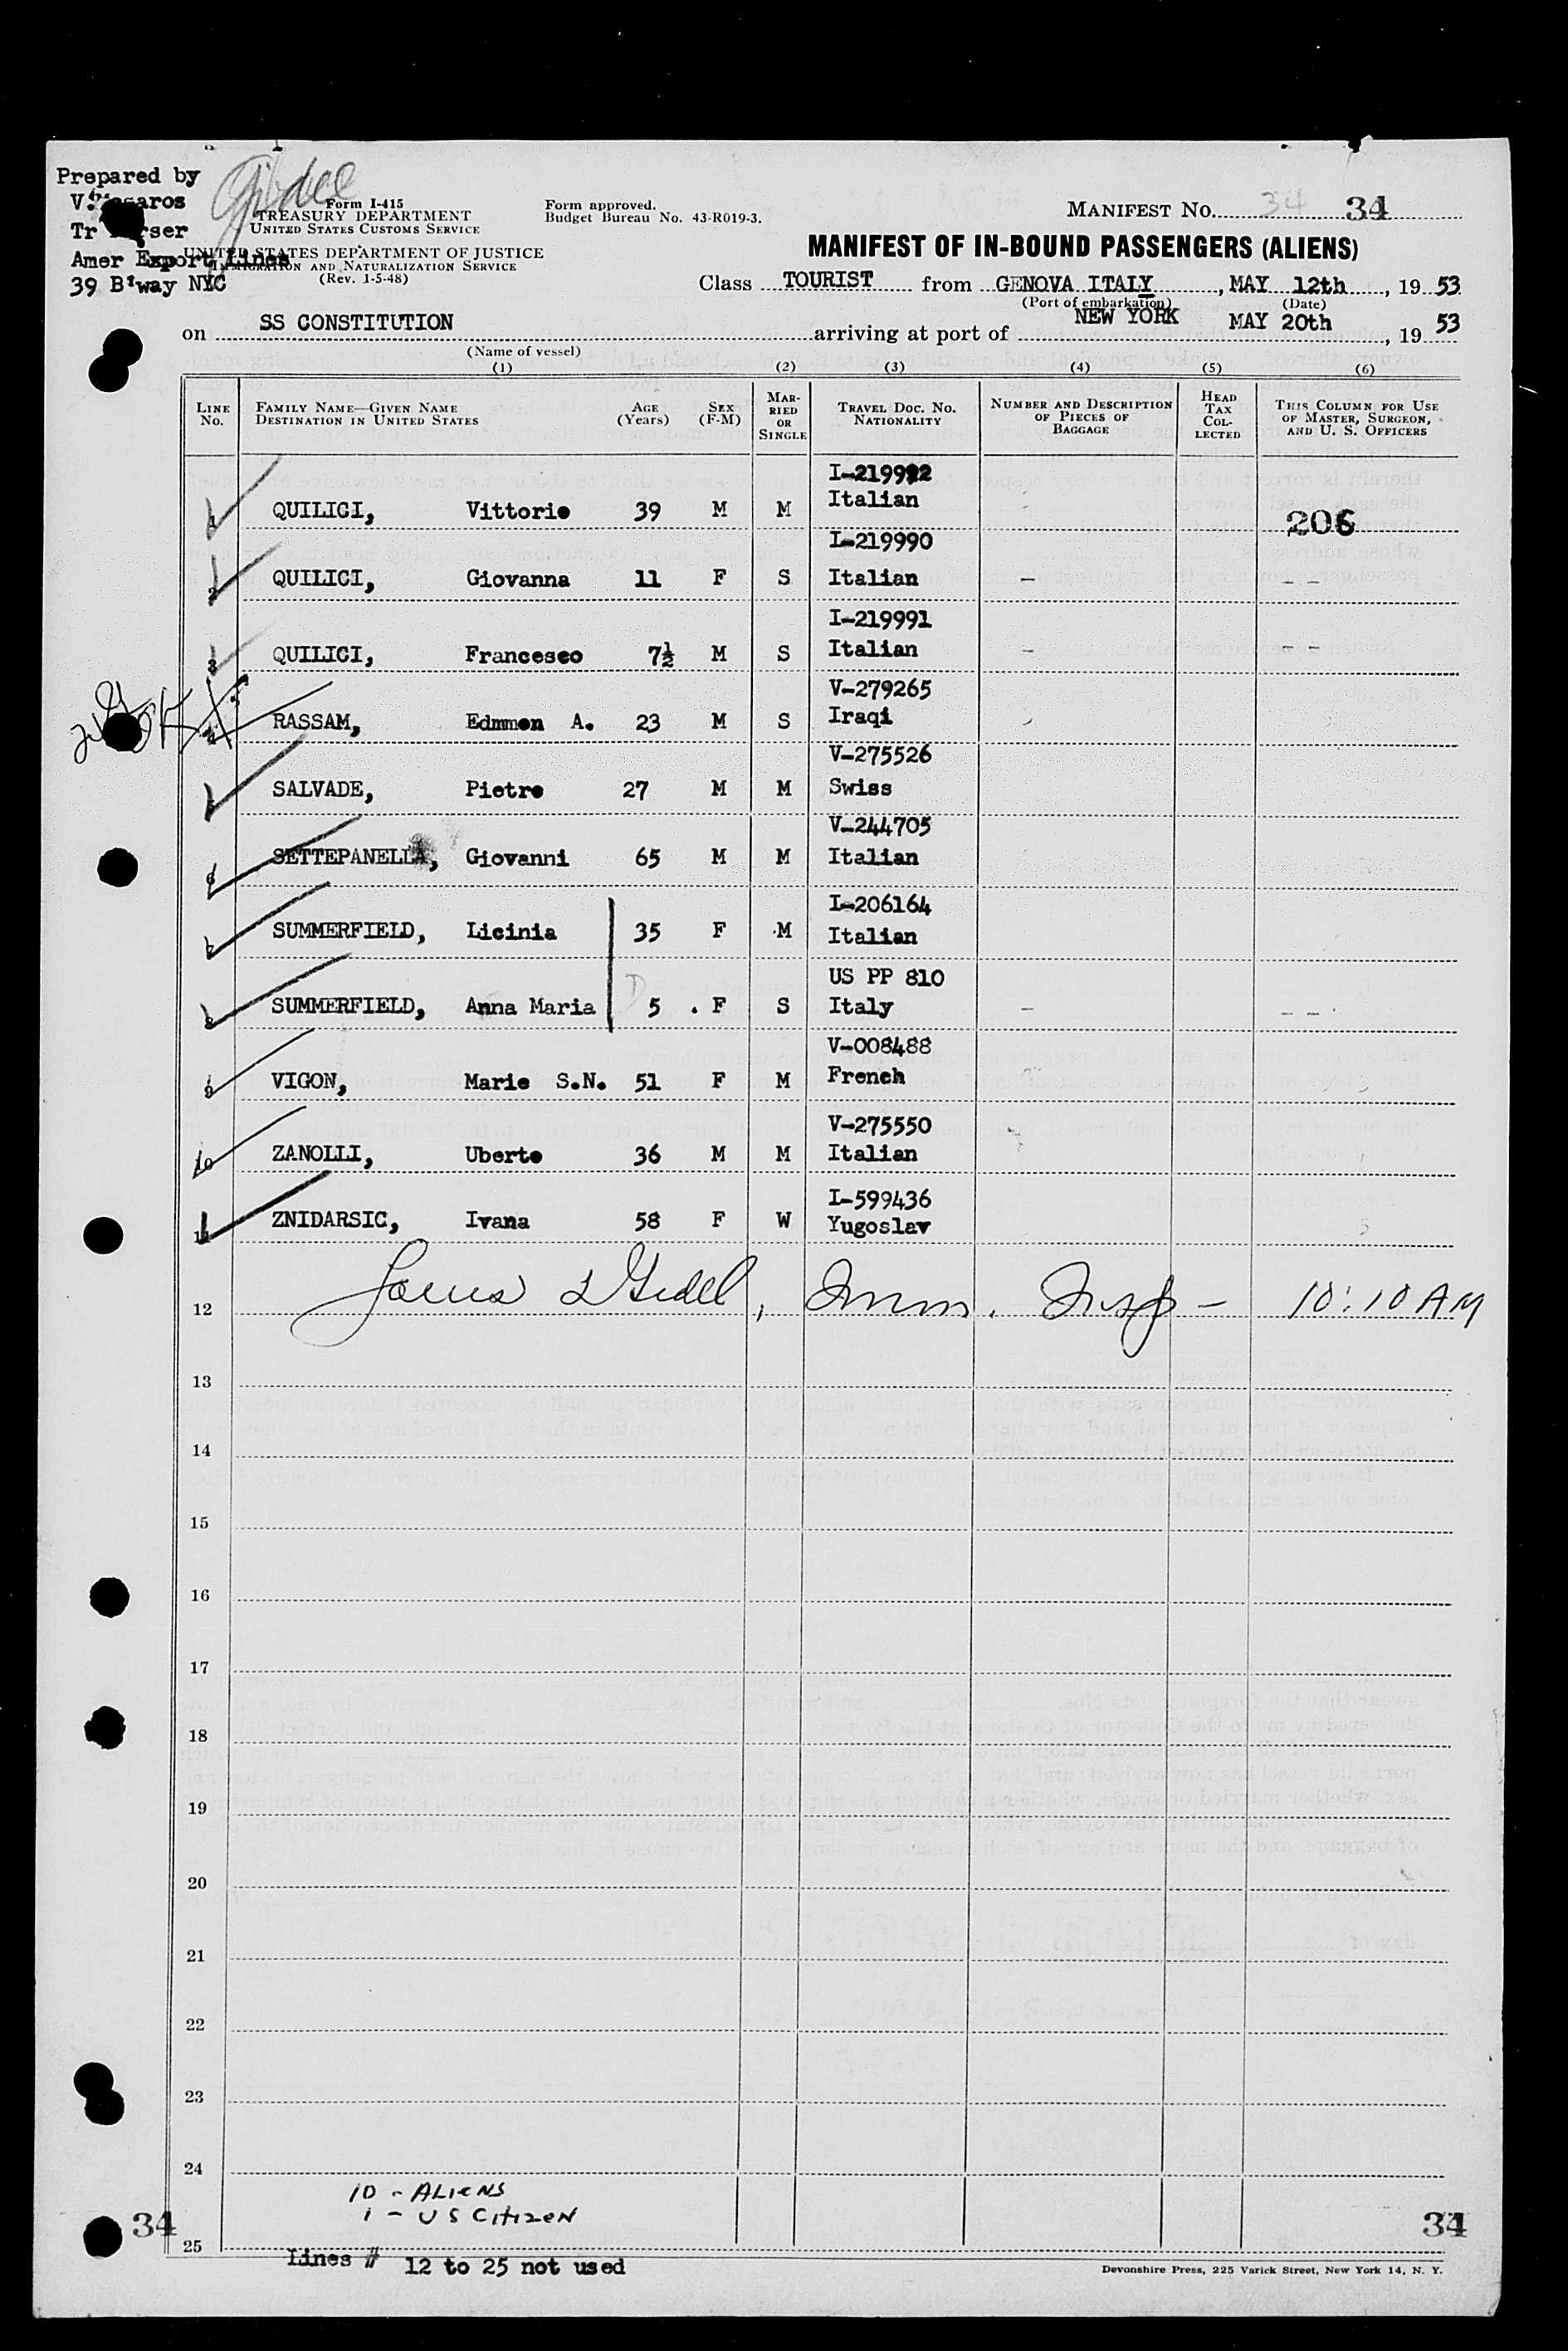 Prepared by
Form I-415
TREASURY DEPARTMENT
UNITED STATES CUSTOMS SERVICE
UNITED STATES DEPARTMENT OF JUSTICE
IMMIGRATION AND NATURALIZATION SERVICE
(Rev. 1-5-48)
Amer Export Lines
39 B'way NYC
Form approved.
Budget Bureau No. 43-R019-3.
MANIFEST NO. 34 34
MANIFEST OF IN-BOUND PASSENGERS (ALIENS)
Class TOURIST from GENOVA ITALY, MAY 12th, 19 53
(Port of embarkation) (Date)
on SS CONSTITUTION arriving at port of NEW YORK MAY 20th, 19 53
(Name of vessel)
(1) (2) (3) (4) (5) (6)
LINE NO. FAMILY NAME—GIVEN NAME DESTINATION IN UNITED STATES AGE (Years) SEX (F-M) MARRIED OR SINGLE TRAVEL DOC. NO. NATIONALITY NUMBER AND DESCRIPTION OF PIECES OF BAGGAGE HEAD TAX COLLECTED THIS COLUMN FOR USE OF MASTER, SURGEON, AND U. S. OFFICERS
I-219992
1 QUILICI, Vittorio 39 M M Italian 206
I-219990
2 QUILICI, Giovanna 11 F S Italian - - -
I-219991
3 QUILICI, Francesco 7½ M S Italian - - -
V-279265
4 RASSAM, Edmmon A. 23 M S Iraqi
V-275526
5 SALVADE, Pietro 27 M M Swiss
V-244705
6 SETTEPANELLA, Giovanni 65 M M Italian
I-206164
7 SUMMERFIELD, Licinia 35 F M Italian
US PP 810
8 SUMMERFIELD, Anna Maria 5 F S Italy - - -
V-008488
9 VIGON, Marie S.N. 51 F M French
V-275550
10 ZANOLLI, Uberto 36 M M Italian
I-599436
11 ZNIDARSIC, Ivana 58 F W Yugoslav
12 Imm. Insp - 10:10 AM
13
14
15
16
17
18
19
20
21
22
23
24
10 - ALIENS
1 - US CITIZEN
34 34
25
Lines # 12 to 25 not used
Devonshire Press, 225 Varick Street, New York 14, N. Y.